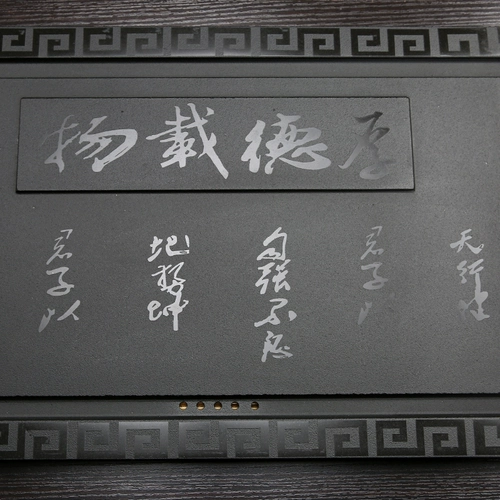 厚德載物
天行健
君子以
自强不息
地势坤
君子以